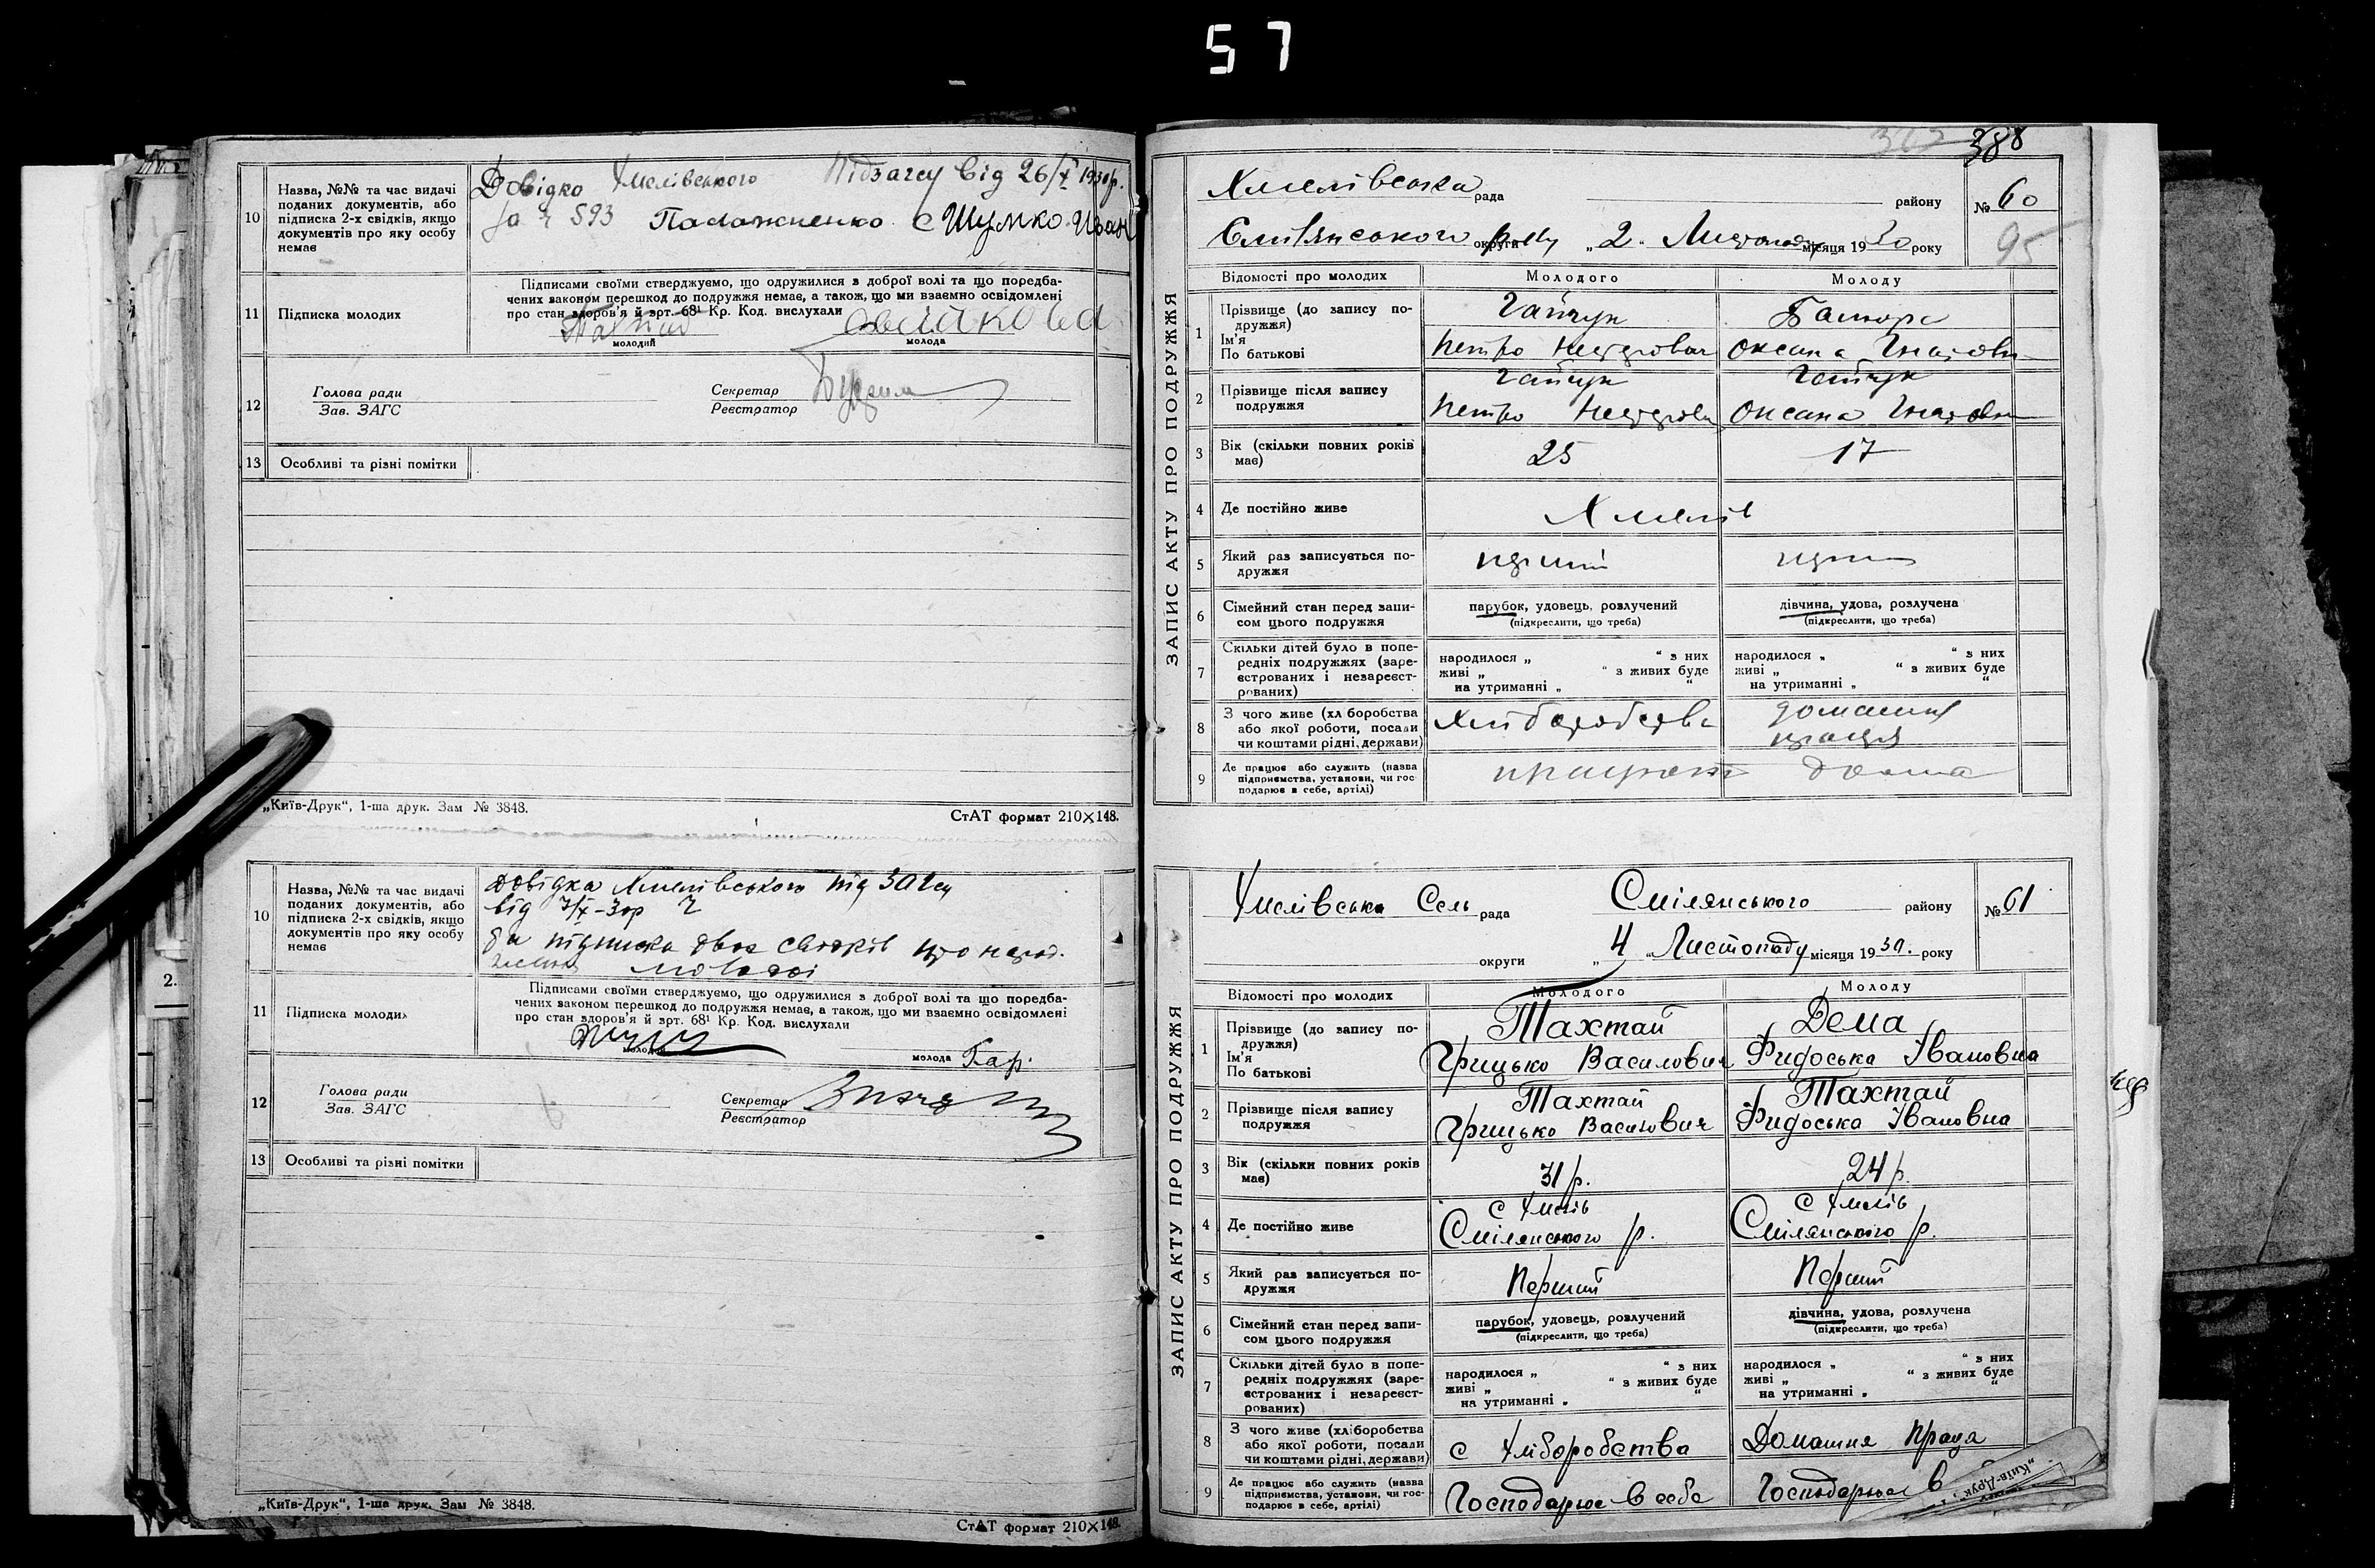 57
10
Назва, №№ та час видачі
поданих документів, або
підписка 2-х свідків, якщо
документів про яку особу
немає
Довідко Хмелівського Підзагсу від 26/X 1930р.
за Ч 593
11
Підписка молодих
Підписами своїми стверджуємо, що одружилися з доброї волі та що передба-
чених законом перешкод до подружжя немає, а також, що ми взаємно освідомлені
про стан здоров'я й арт. 68¹ Кр. Код. вислухали
молодий
молода
12
Голова ради
Зав. ЗАГС
Секретар
Реєстратор
13
Особливі та різні помітки
„Київ-Друк“, 1-ша друк. Зам № 3848.
СтАТ формат 210×148.
10
Назва, №№ та час видачі
поданих документів, або
підписка 2-х свідків, якщо
документів про яку особу
немає
довідка Хмелівського підзагсу
від
підписка двох свідків про
11
Підписка молодих
Підписами своїми стверджуємо, що одружилися з доброї волі та що передба-
чених законом перешкод до подружжя немає, а також, що ми взаємно освідомлені
про стан здоров'я й арт. 68¹ Кр. Код. вислухали
молодий
молода
12
Голова ради
Зав. ЗАГС
Секретар
Реєстратор
13
Особливі та різні помітки
„Київ-Друк“, 1-ша друк. Зам № 3848.
СтАТ формат 210×148.
2.
388
ЗАПИС АКТУ ПРО ПОДРУЖЖЯ
Хмелівська рада району № 60
округи „2„ Листопаду місяця 1930 року
95
Відомості про молодих Молодого Молоду
1
Прізвище (до запису по-
дружжя)
Ім'я
По батькові
Гайчук
Петро
Оксана
2
Прізвище після запису
подружжя
Гайчук Гайчук
Петро Оксана
3
Вік (скільки повних років
має)
25 17
4
Де постійно живе
Хмелів
5
Який раз записується по-
дружжя
6
Сімейний стан перед запи-
сом цього подружжя
парубок, удовець, розлучений
(підкреслити, що треба)
дівчина, удова, розлучена
(підкреслити, що треба)
7
Скільки дітей було в попе-
редніх подружжях (заре-
єстрованих і незареєст-
рованих)
народилося „ “ з них
живі „ “ з живих буде
на утриманні „ “
народилося „ “ з них
живі „ “ з живих буде
на утриманні „ “
8
З чого живе (хліборобства
або якої роботи, посади
чи коштами рідні, держави)
домашня
праця
9
Де працює або служить (назва
підприємства, установи, чи гос-
подарює в себе, артілі)
дома
ЗАПИС АКТУ ПРО ПОДРУЖЖЯ
Хмелівська Сель рада Смілянського району № 61
округи „4„ Листопаду місяця 1930. року
Відомості про молодих Молодого Молоду
1
Прізвище (до запису по-
дружжя)
Ім'я
По батькові
Тахтай Дема
Грицько Василович Фидоська Івановна
2
Прізвище після запису
подружжя
Тахтай Тахтай
Грицько Василович Фидоська Івановна
3
Вік (скільки повних років
має)
31 р. 24 р.
4
Де постійно живе
с Хмелів с Хмелів
Смілянського р. Смілянського р.
5
Який раз записується по-
дружжя
Перший Перший
6
Сімейний стан перед запи-
сом цього подружжя
парубок, удовець, розлучений
(підкреслити, що треба)
дівчина, удова, розлучена
(підкреслити, що треба)
7
Скільки дітей було в попе-
редніх подружжях (заре-
єстрованих і незареєст-
рованих)
народилося „ “ з них
живі „ “ з живих буде
на утриманні „ “
народилося „ “ з них
живі „ “ з живих буде
на утриманні „ “
8
З чого живе (хліборобства
або якої роботи, посади
чи коштами рідні, держави)
с Хліборобства Домашня Праця
9
Де працює або служить (назва
підприємства, установи, чи гос-
подарює в себе, артілі)
Господарює в себе Господарює в
„Київ-Друк“,